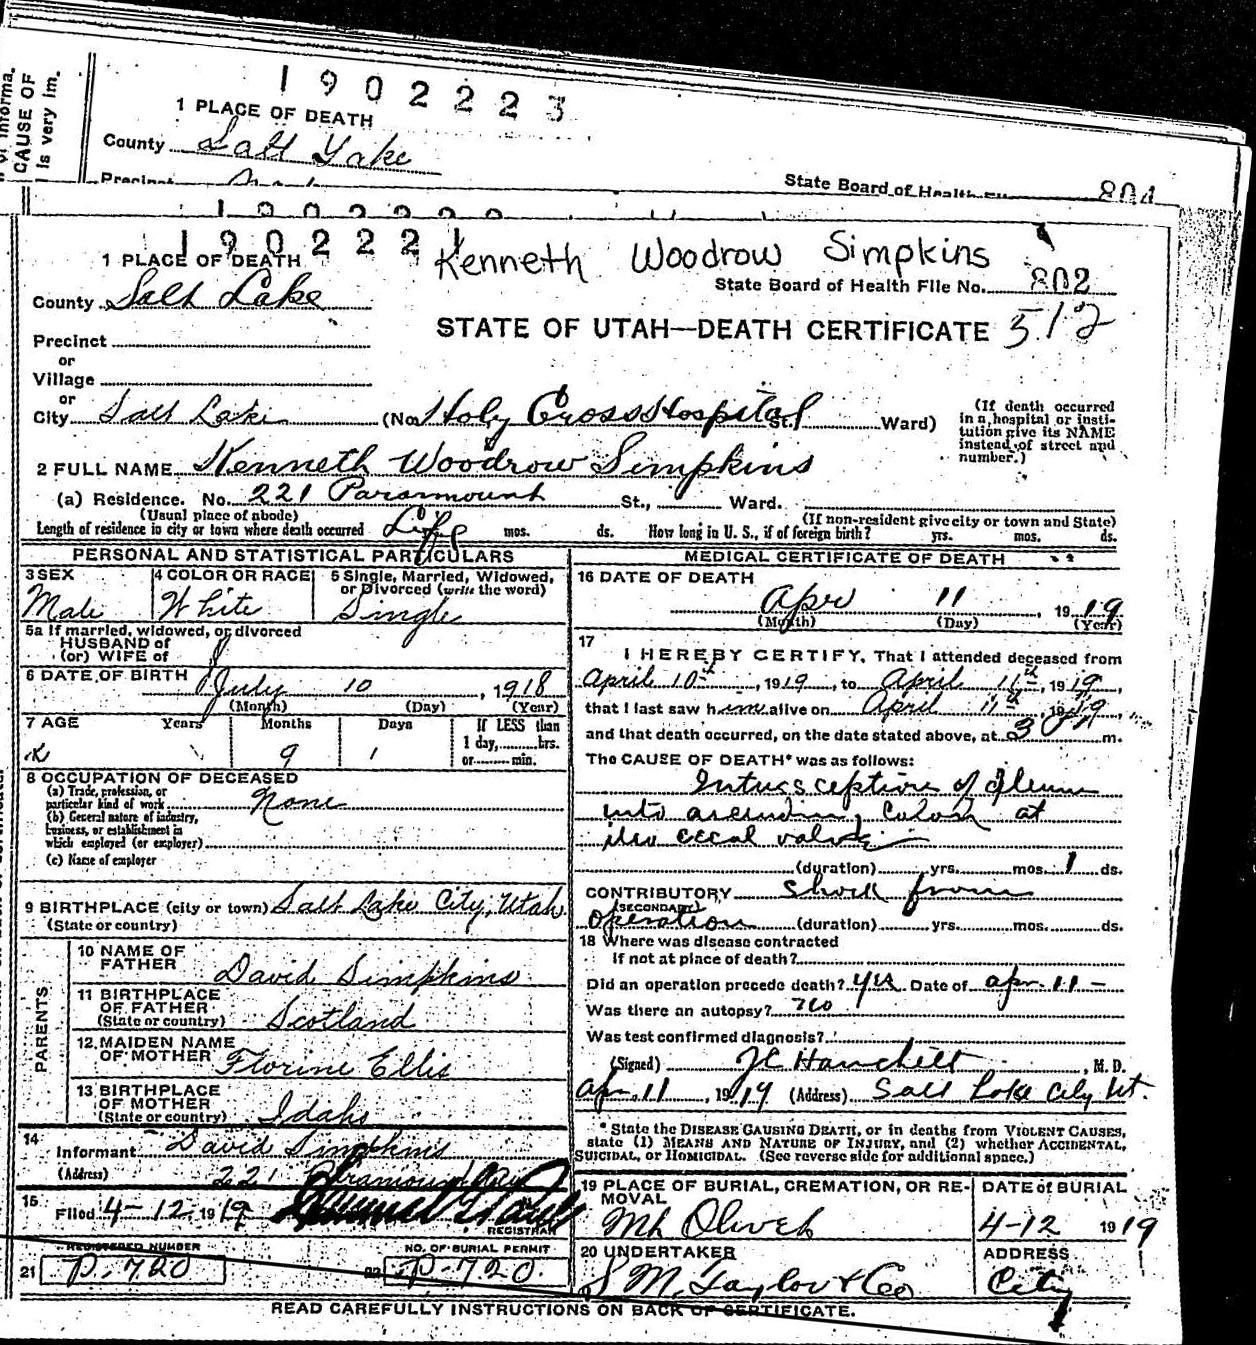 CAUSE OF
is very im.
1902223
1 PLACE OF DEATH
County Salt Lake
State Board of Health 804
1902221
Kenneth Woodrow Simpkins
1 PLACE OF DEATH
State Board of Health File No. 802
County Salt Lake
STATE OF UTAH—DEATH CERTIFICATE 512
Precinct
or
Village
or
City Salt Lake (No. Holy Cross Hospital St. Ward)
(If death occurred in a hospital or institution give its NAME instead of street and number.)
2 FULL NAME Kenneth Woodrow Simpkins
(a) Residence. No. 221 Paramount St., Ward.
(Usual place of abode) (If non-resident give city or town and State)
Length of residence in city or town where death occurred Life mos. ds. How long in U. S., if of foreign birth? yrs. mos. ds.
PERSONAL AND STATISTICAL PARTICULARS
3 SEX Male
4 COLOR OR RACE White
5 Single, Married, Widowed, or Divorced (write the word) Single
5a If married, widowed, or divorced
HUSBAND of
(or) WIFE of
6 DATE OF BIRTH July 10, 1918
(Month) (Day) (Year)
7 AGE Years Months Days If LESS than
9 1 1 day, hrs.
or min.
8 OCCUPATION OF DECEASED
(a) Trade, profession, or
particular kind of work None
(b) General nature of industry,
business, or establishment in
which employed (or employer)
(c) Name of employer
9 BIRTHPLACE (city or town) Salt Lake City, Utah
(State or country)
PARENTS
10 NAME OF FATHER David Simpkins
11 BIRTHPLACE OF FATHER (State or country) Scotland
12 MAIDEN NAME OF MOTHER Florine Ellis
13 BIRTHPLACE OF MOTHER (State or country) Idaho
14 Informant David Simpkins
(Address) 221 Paramount
15 Filed 4-12, 1919
REGISTRAR
REGISTERED NUMBER
21 P-720
NO. OF BURIAL PERMIT
22 P-720
MEDICAL CERTIFICATE OF DEATH
16 DATE OF DEATH
Apr 11, 1919
(Month) (Day) (Year)
17
I HEREBY CERTIFY, That I attended deceased from
April 10th, 1919, to April 11th, 1919,
that I last saw him alive on April 11th, 1919,
and that death occurred, on the date stated above, at 3 m.
The CAUSE OF DEATH* was as follows:
Intussception of Ileum
into ascending colon at
ileo cecal valve
(duration) yrs. mos. 1 ds.
CONTRIBUTORY Shock from
(SECONDARY)
operation (duration) yrs. mos. ds.
18 Where was disease contracted
if not at place of death?
Did an operation precede death? yes Date of apr. 11 -
Was there an autopsy? no
Was test confirmed diagnosis?
(Signed) , M. D.
Apr. 11, 1919 (Address) Salt Lake City Ut.
* State the DISEASE CAUSING DEATH, or in deaths from VIOLENT CAUSES,
state (1) MEANS AND NATURE OF INJURY, and (2) whether ACCIDENTAL,
SUICIDAL, or HOMICIDAL. (See reverse side for additional space.)
19 PLACE OF BURIAL, CREMATION, OR REMOVAL
Mt Olivet
DATE of BURIAL
4-12 1919
20 UNDERTAKER
S M. Taylor & Co
ADDRESS
City
READ CAREFULLY INSTRUCTIONS ON BACK OF CERTIFICATE.